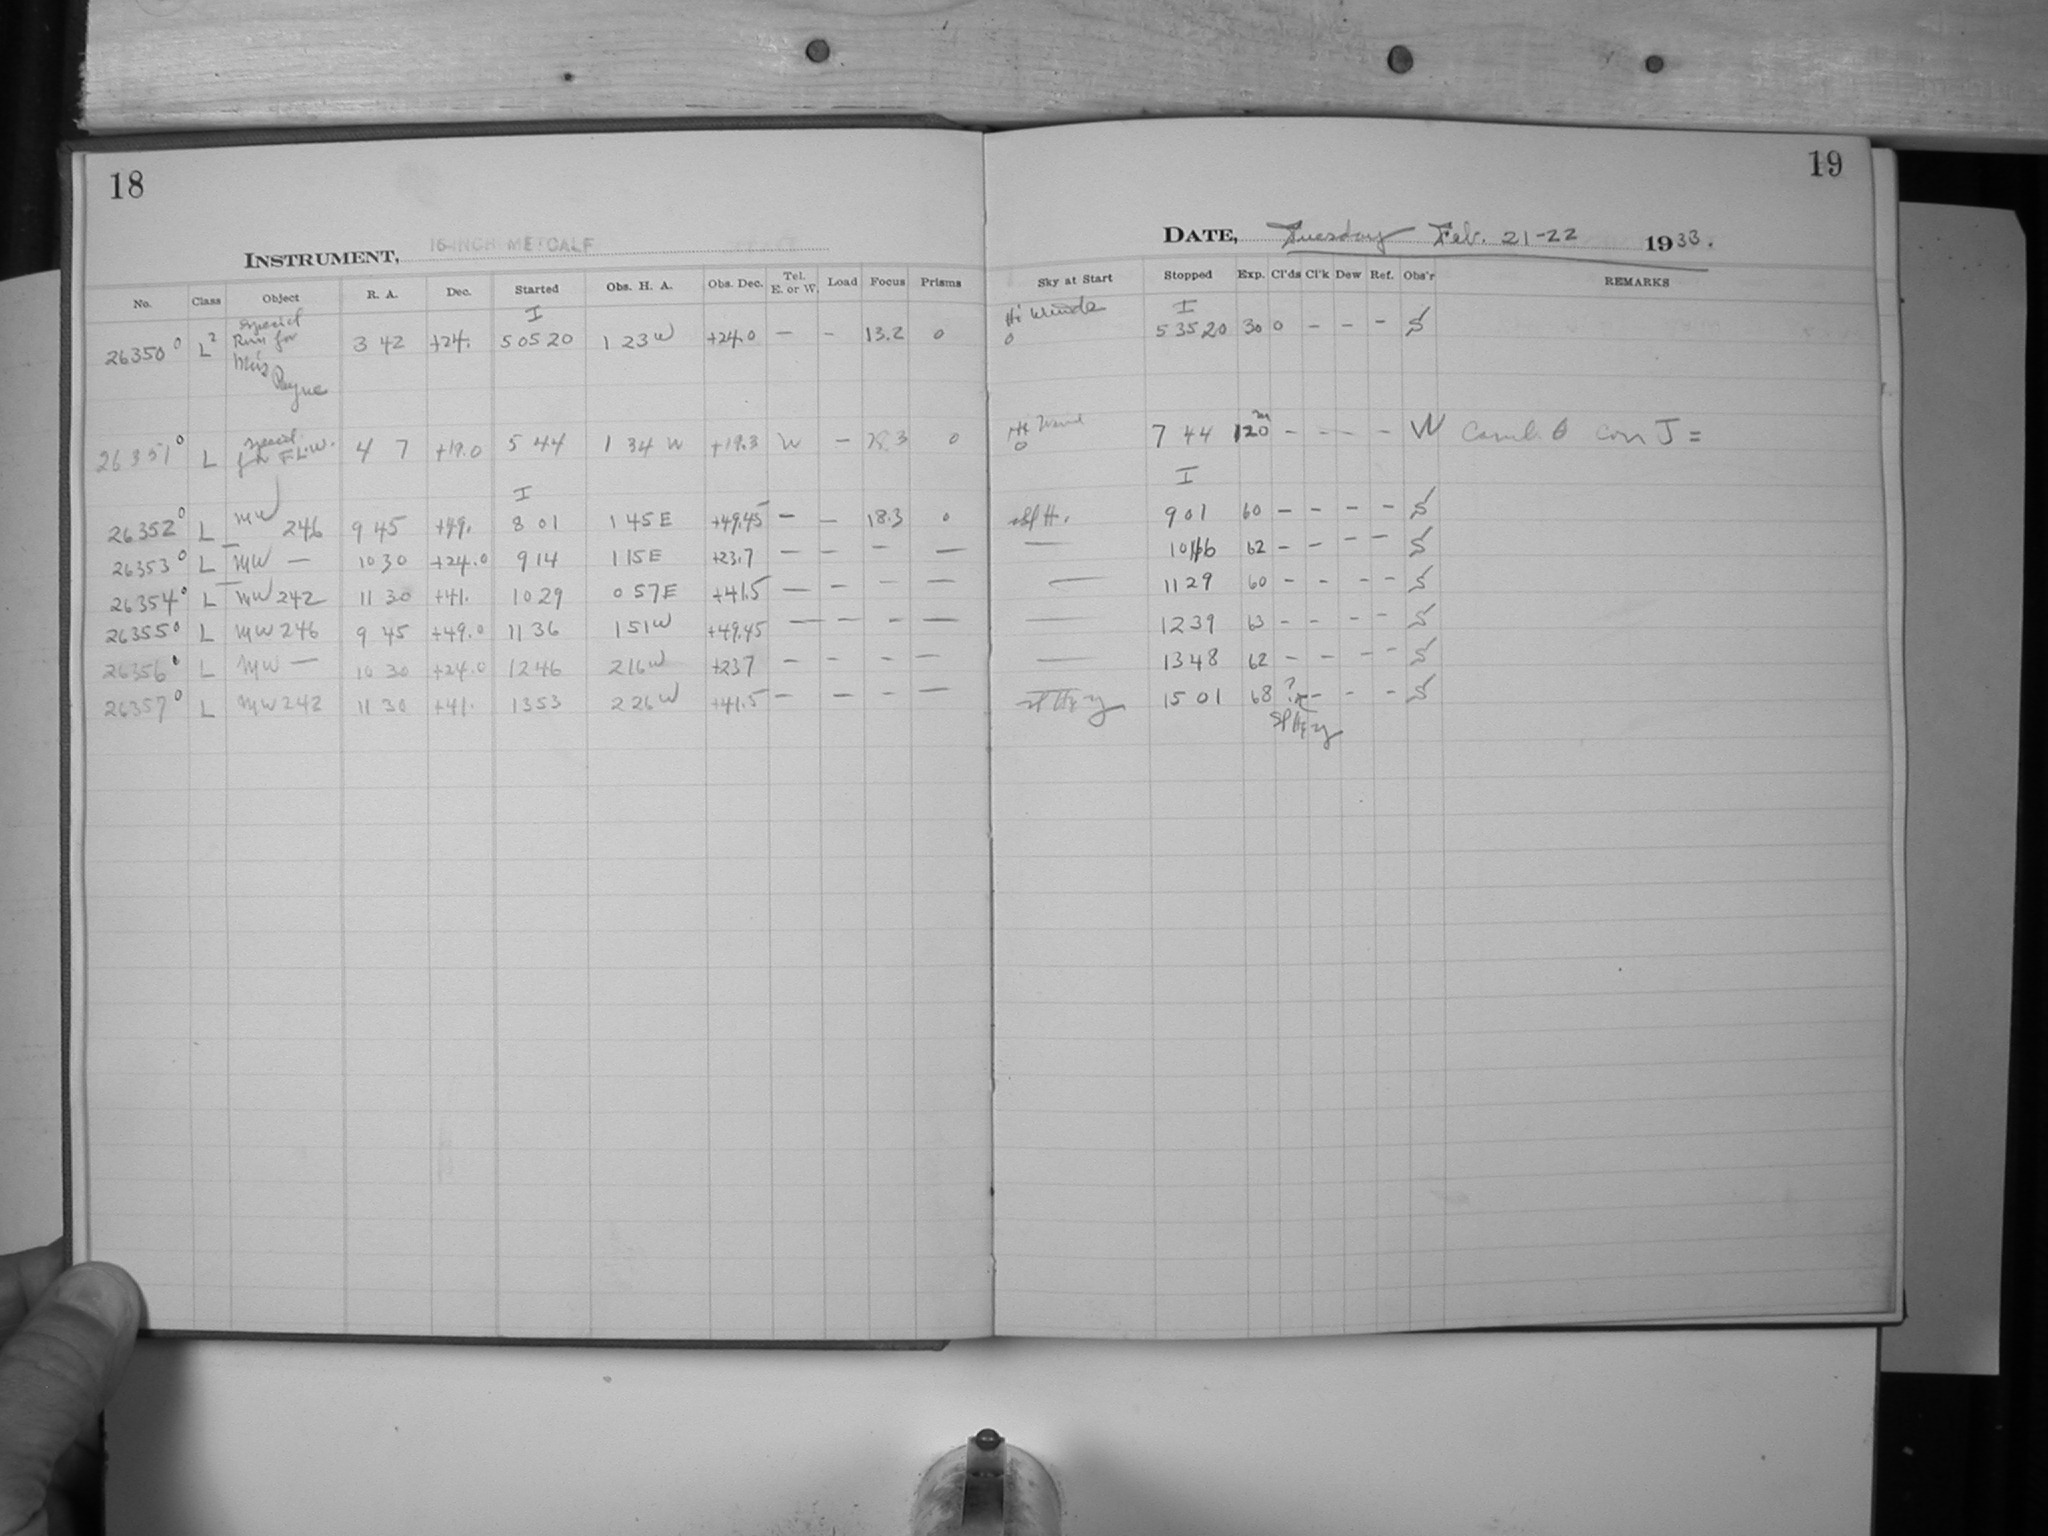 18
INSTRUMENT, 16-INCH METCALF
No. Class Object R. A. Dec. Started Obs. H. A. Obs. Dec. Tel. E. or W. Load Focus Prisms
I
26350 0 L2 Special Run for Miss Payne 3 42 +24. 5 05 20 1 23 W +24.0 — – 13.2 0
26351 0 L Special for F.L.W. 4 7 +19.0 5 44 1 34 W +19.3 W — 18.3 0
I
26352 0 L MW 246 9 45 +49. 8 01 1 45 E +49.45 — — 18.3 0
26353 0 L MW — 10 30 +24.0 9 14 1 15 E +23.7 — — — —
26354 0 L MW 242 11 30 +41. 10 29 0 57 E +41.5 — — — —
26355 0 L MW 246 9 45 +49.0 11 36 1 51 W +49.45 — — — —
26356 0 L MW — 10 30 +24.0 12 46 2 16 W +23.7 — – – —
26357 0 L MW 242 11 30 +41. 13 53 2 26 W +41.5 — – – —
19
DATE, Tuesday Feb. 21-22 1933.
Sky at Start Stopped Exp. Cl'ds Cl'k Dew Ref. Obs'r REMARKS
I
0 5 35 20 30 0 – – – S
0 7 44 120m – – – – W J =
I
Sl H. 9 01 60 – – – – S
— 62 – – – – S
— 11 29 60 – – – – S
— 12 39 63 – – – – S
— 13 48 62 – – – – S
15 01 68 ? – – – S